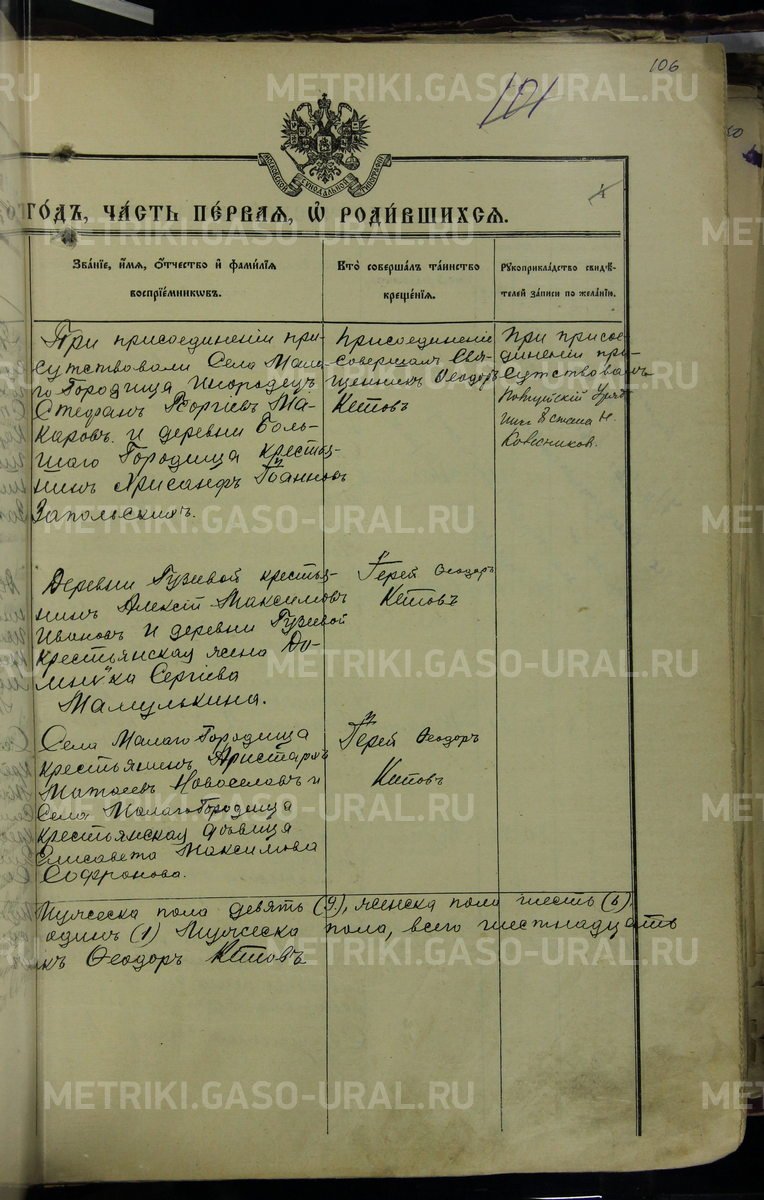 106
101
METRIKI.GASO-URAL.RU
МОСКОВСКОЙ СѴНОДАЛЬНОЙ ТИПОГРАФІИ
ГОДЪ, ЧАСТЬ ПЕРВАЯ, Ѽ РОДИВШИХСЯ.
Званіе, имя, отчество и фамилія
воспріемниковъ.
Кто совершалъ таинство
крещенія.
Рукоприкладство свидѣ-
телей записи по желанію.
При присоединеніи при-
сутствовали Села Мала-
го Городища инородецъ
Стефанъ Георгіевъ Ма-
каровъ и деревни Боль-
шаго Городища крестья-
нинъ Хрисанфъ Іоанновъ
Запольскихъ.
Присоединеніе
совершалъ Свя-
щенникъ Ѳеодоръ
Кетовъ
При присое-
динении при-
сутствовалъ
Полицейскій Уряд-
никъ 8 стана Н.
Колесников.
Деревни Гузиевой крестья-
нинъ Алексій Максимовъ
Ивановъ и деревни Гузиевой
крестьянская жена До-
мника Сергіева
Мамулькина.
Іерей Ѳеодоръ
Кетовъ
Села Малаго Городища
крестьянинъ Аристархъ
Матѳеевъ Новоселовъ и
Села Малаго Городища
крестьянская дѣвица
Елисавета Максимова
Софронова.
Іерей Ѳеодоръ
Кетовъ
Мужеска пола девять (9), женска пола шесть (6).
одинъ (1) Мужеска пола, всего шестнадцать
къ Ѳеодоръ Кетовъ
METRIKI.GASO-URAL.RU
METRIKI.GASO-URAL.RU
METRIKI.GASO-URAL.RU
METRIKI.GASO-URAL.RU
METRIKI.GASO-URAL.RU
METRIKI.GASO-URAL.RU
METRIKI.GASO-URAL.RU